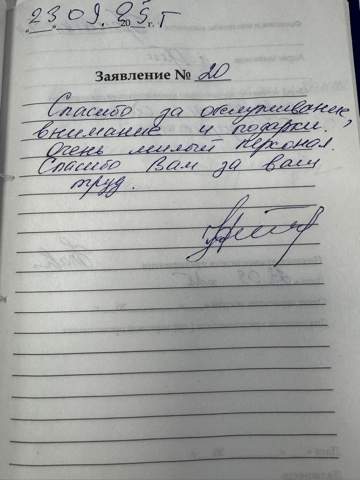 23.09.2025 г.
Заявление № 20
Спасибо за обслуживание,
внимание и подарки.
Очень милый персонал.
Спасибо Вам за ваш
труд.